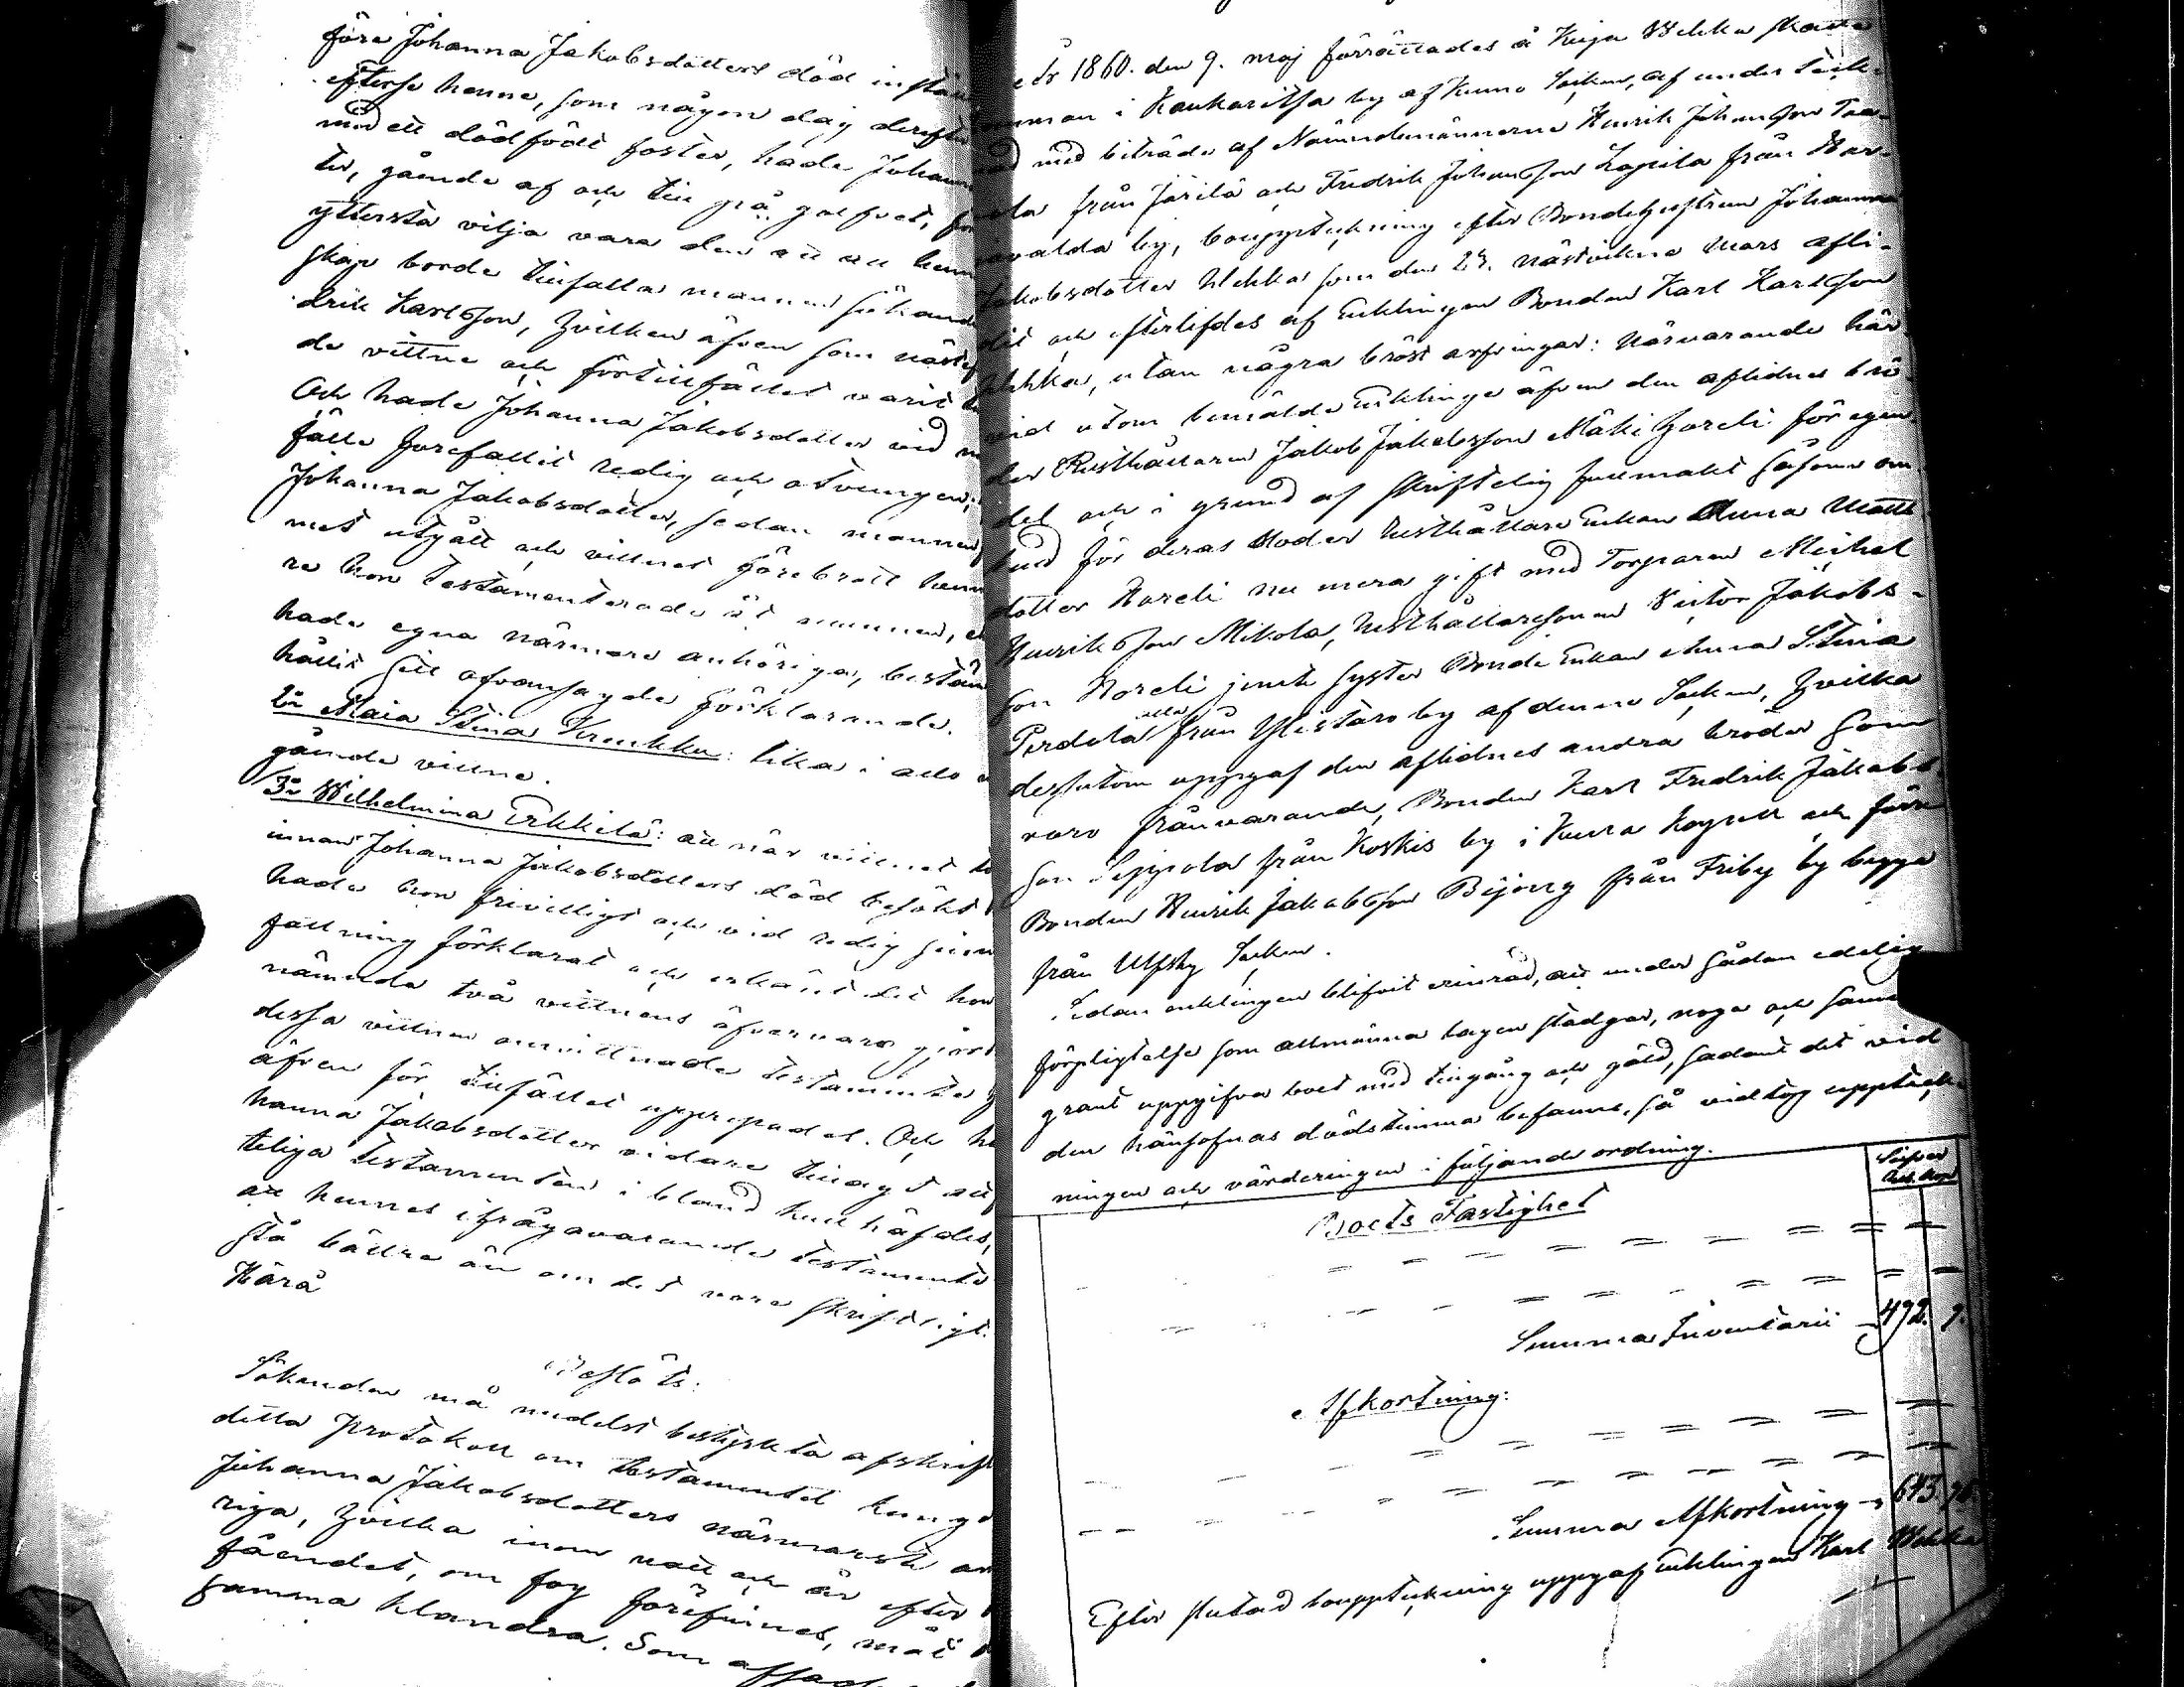 före Johanna Jakobsdotters död instän
efterse henne, som någon dag derefter
med ett dödfödt foster, hade Johann
ter, gående af och till på golfvet, för
yttersta vilja vara den att all henn
skap borde tillfalla mannen sökand
drik Karlsson, hvilken äfven som näst
de vittne och förtillfället varit
Och hade Johanna Jakobsdotter vid
fälle förefallit redig och otvungen;
Johanna Jakobsdotter, sedan mannen
met utgått och vittnet förebrått henn
re hon testamenterade åt mannen, 
hade egna närmare anhöriga, bestäm
hållit sitt ofvansagde förklarande.
2o Maia Stina Krukka: lika i allo
gående vittne.
3o Wilhelmina Erkkilä: att när vittnet
innan Johanna Jakobsdotters död besökt
hade hon frivilligt och vid redig sinn
fattning förklarat och erkänt det hon
nämnde två vittnens öfvervaro gjort
dessa vittnen omvittnade testamente
äfven för tillfället upprepades. Och h
hanna Jakobsdotter vidare tillagt att
teliga testamenten i bland kullhäfdes,
att hennes ifrågavarande testamente
stå bättre än om det vore skriftligt.
Härå
Reslots:
Sökanden må medelst bestyrkta afskrift
detta protokoll om testamentet kungö
Johanna Jakobsdotters närmaste an
riga, hvilka inom natt och år efter
fåendet, om fog förefinnes, måt
samma klandra. Som afsad
År 1860. den 9. maj förrättades å Keija Uekka skatte
hemman i Kaukaritsa by af Kumo Socken, af under teck-
nad med biträde af Nämndemännerne Henrik Johansson Taa-
vola från Järilä och Fredrik Johansson Lapila från Har-
javalda by, bouppteckning efter Bondehustrun Johanna
Jakobsdotter Uekka som den 27. nästvikne Mars afli-
dit och efterlefdes af Enklingen Bonden Karl Karlsson
Uekka, utan några bröst arfvingar: Närvarande här
vid utom bemälde Enklinge äfven den aflidnes bro-
der Rusthållaren Jakob Jakobsson Mäki Horeli för egen
del och i grund af skriftelig fullmakt såsom om-
bud för deras Moder Rusthållare Enkan Anna Matts-
dotter Horeli nu mera gift med Torparen Michel
Henriksson Mikola, Rusthållaresonen Victor Jakobs-
son Horeli jemte syster Bonde Enkan Anna Stina
Perdola alla från Ylistaro by af denne Socken, hvilka
dessutom uppgaf den aflidnes andra bröder som
voro frånvarande, Bonden Karl Fredrik Jakobs-
son Seppola från Koskis by i Kulla Kapell och förre
Bonden Henrik Jakobsson Björny från Friby by begge
från Ulfsby Socken.
Sedan enklingen blifvit erinrad, att under sådan edelig
förpligtelse som allmänna lagen stadgar, noga och sann-
grant uppgifva boet med tillgång och gäld, sådant det vid
den hänsofnas dödstimma befanns, så vidtog uppteck-
ningen och värderingen i följande ordning.
Silfver
Rub. Kop
Boets Fastighet
Summa Inventarii 492. 7.
Afkortning:
Summa Afkortning 643
Efter slutad bouppteckning uppgaf Enklingen Karl Uekka